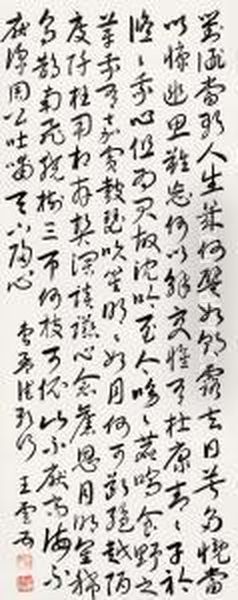 對酒當歌人生幾何譬如朝露去日苦多慨當
以慷幽思難忘何以解憂惟有杜康青々子衿
悠々我心但為君故沈吟至今呦々鹿鳴食野之
苹我有嘉賓鼓瑟吹笙明々如月何可斷絕越陌
度阡枉用相存契闊談讌心念舊恩月明星稀
烏鵲南飛繞樹三匝何枝可依山不厭高海不
厭深周公吐哺天下歸心
曹孟德歌行 王雲